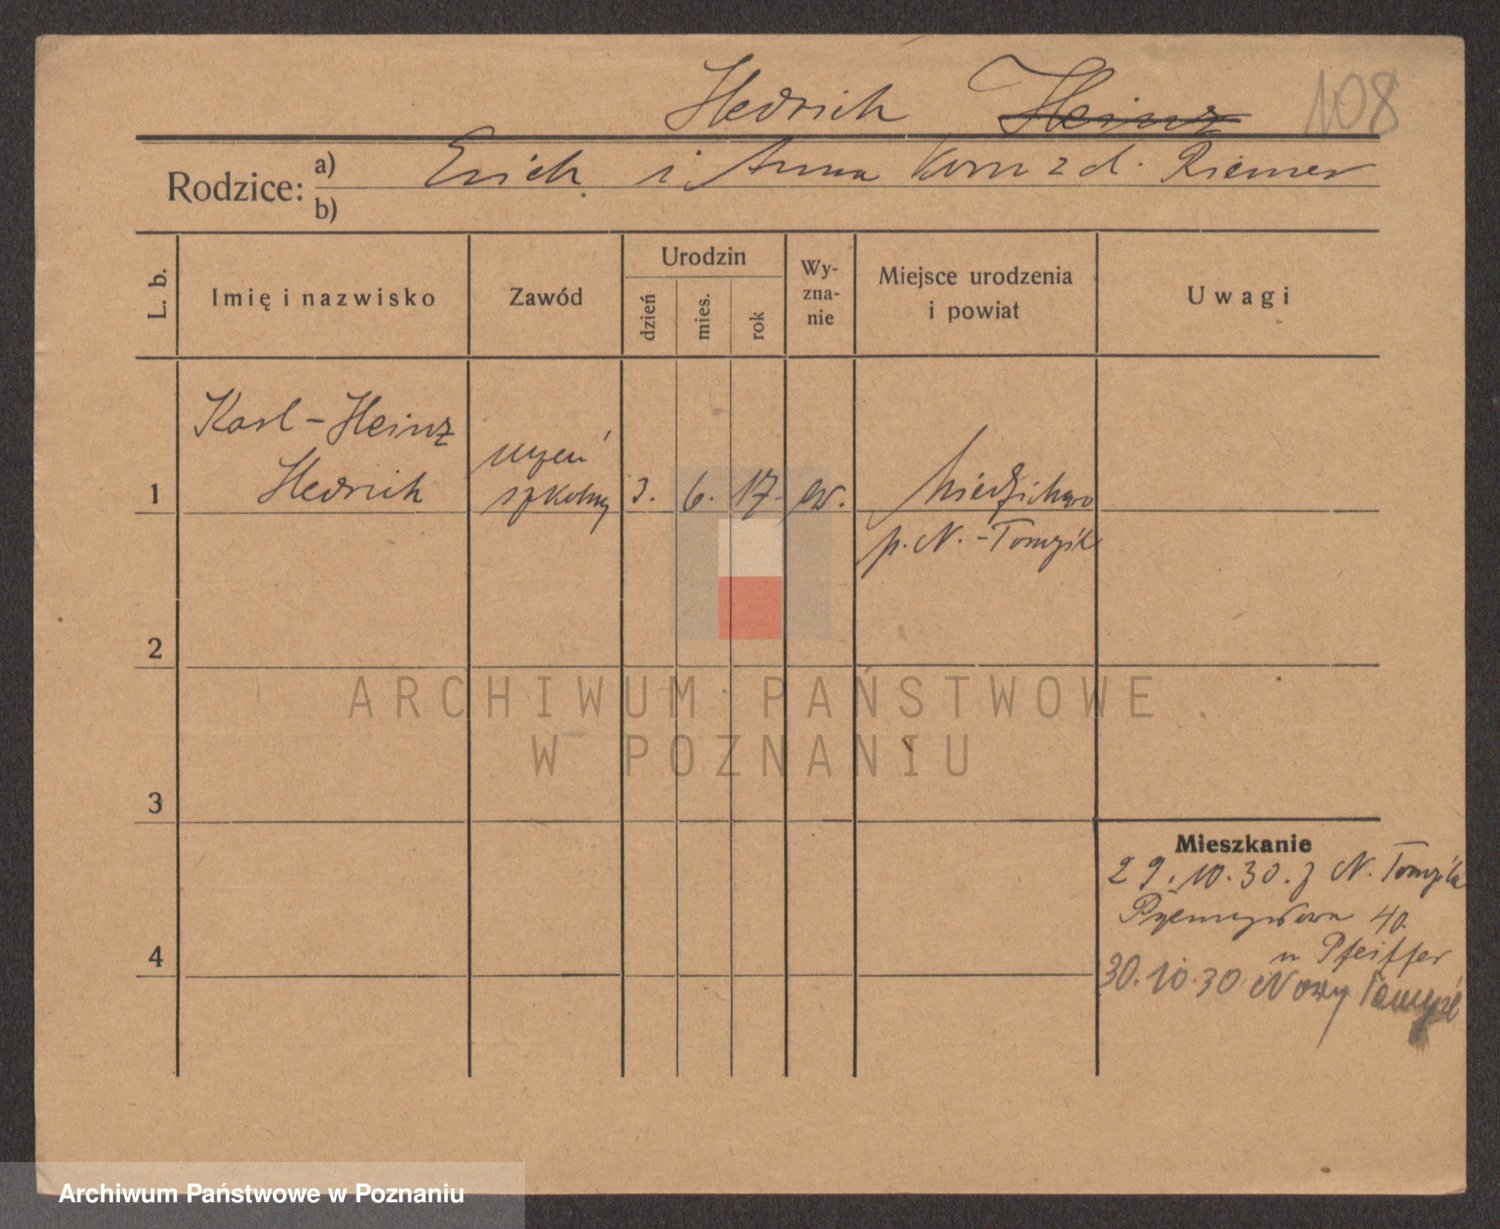 Hedrich Heinz 108
Rodzice: a) Erich i Anna Korn z d. Riemer
b)
L. b.
Imię i nazwisko
Zawód
Urodzin
dzień
mies.
rok
Wy-
zna-
nie
Miejsce urodzenia
i powiat
Uwagi
Karl-Heinz
Hedrich
uczeń
szkolny
1
3. 6. 17. ew.
p. N.-Tomyśl
2
3
4
Mieszkanie
29.10.30. z N. Tomyśla
40.
u Pfeiffer
30.10.30 Nowy Tomyśl
ARCHIWUM PAŃSTWOWE
W POZNANIU
Archiwum Państwowe w Poznaniu